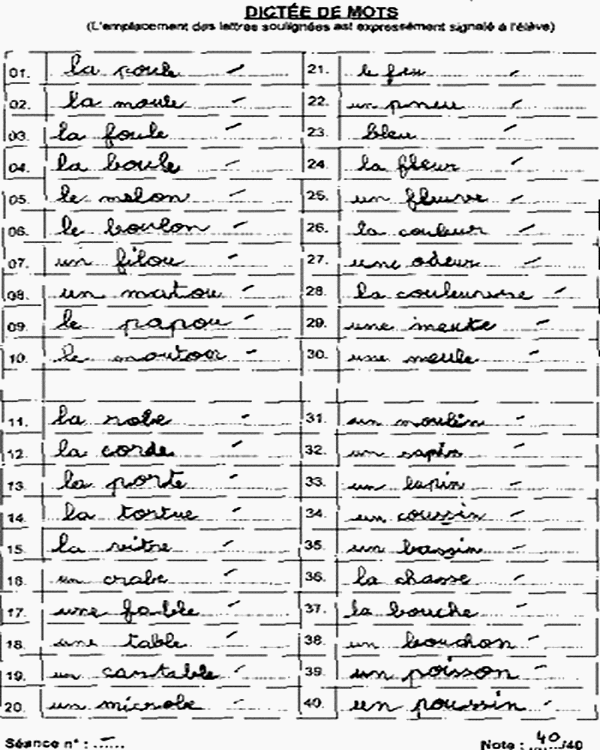 DICTÉE DE MOTS
(L'emplacement des lettres soulignées est expressément signalé à l'élève)
01. la poule
02. la moule
03. la foule
04. la boule
05. le melon
06. le boulon
07. un filou
08. un matou
09. le papou
10. le mouton
11. la robe
12. la corde
13. la porte
14. la tortue
15. la vitre
16. un crabe
17. une fable
18. une table
19. un cartable
20. un microbe
21. le feu
22. un pneu
23. bleu
24. la fleur
25. un fleuve
26. la couleur
27. une odeur
28. la couleuvre
29. une meute
30. une meule
31. un moulin
32. un sapin
33. un lapin
34. un coussin
35. un bassin
36. la chasse
37. la bouche
38. un bouchon
39. un poisson
40. un poussin
Séance n° :
Note : 40/40